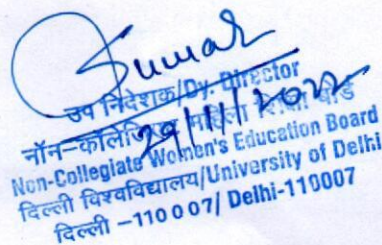 Kumar
उप निदेशक/Dy. Director
29/11/2022
नॉन-कॉलेजिएट महिला शिक्षा बोर्ड
Non-Collegiate Women's Education Board
दिल्ली विश्वविद्यालय/University of Delhi
दिल्ली -110007/ Delhi-110007